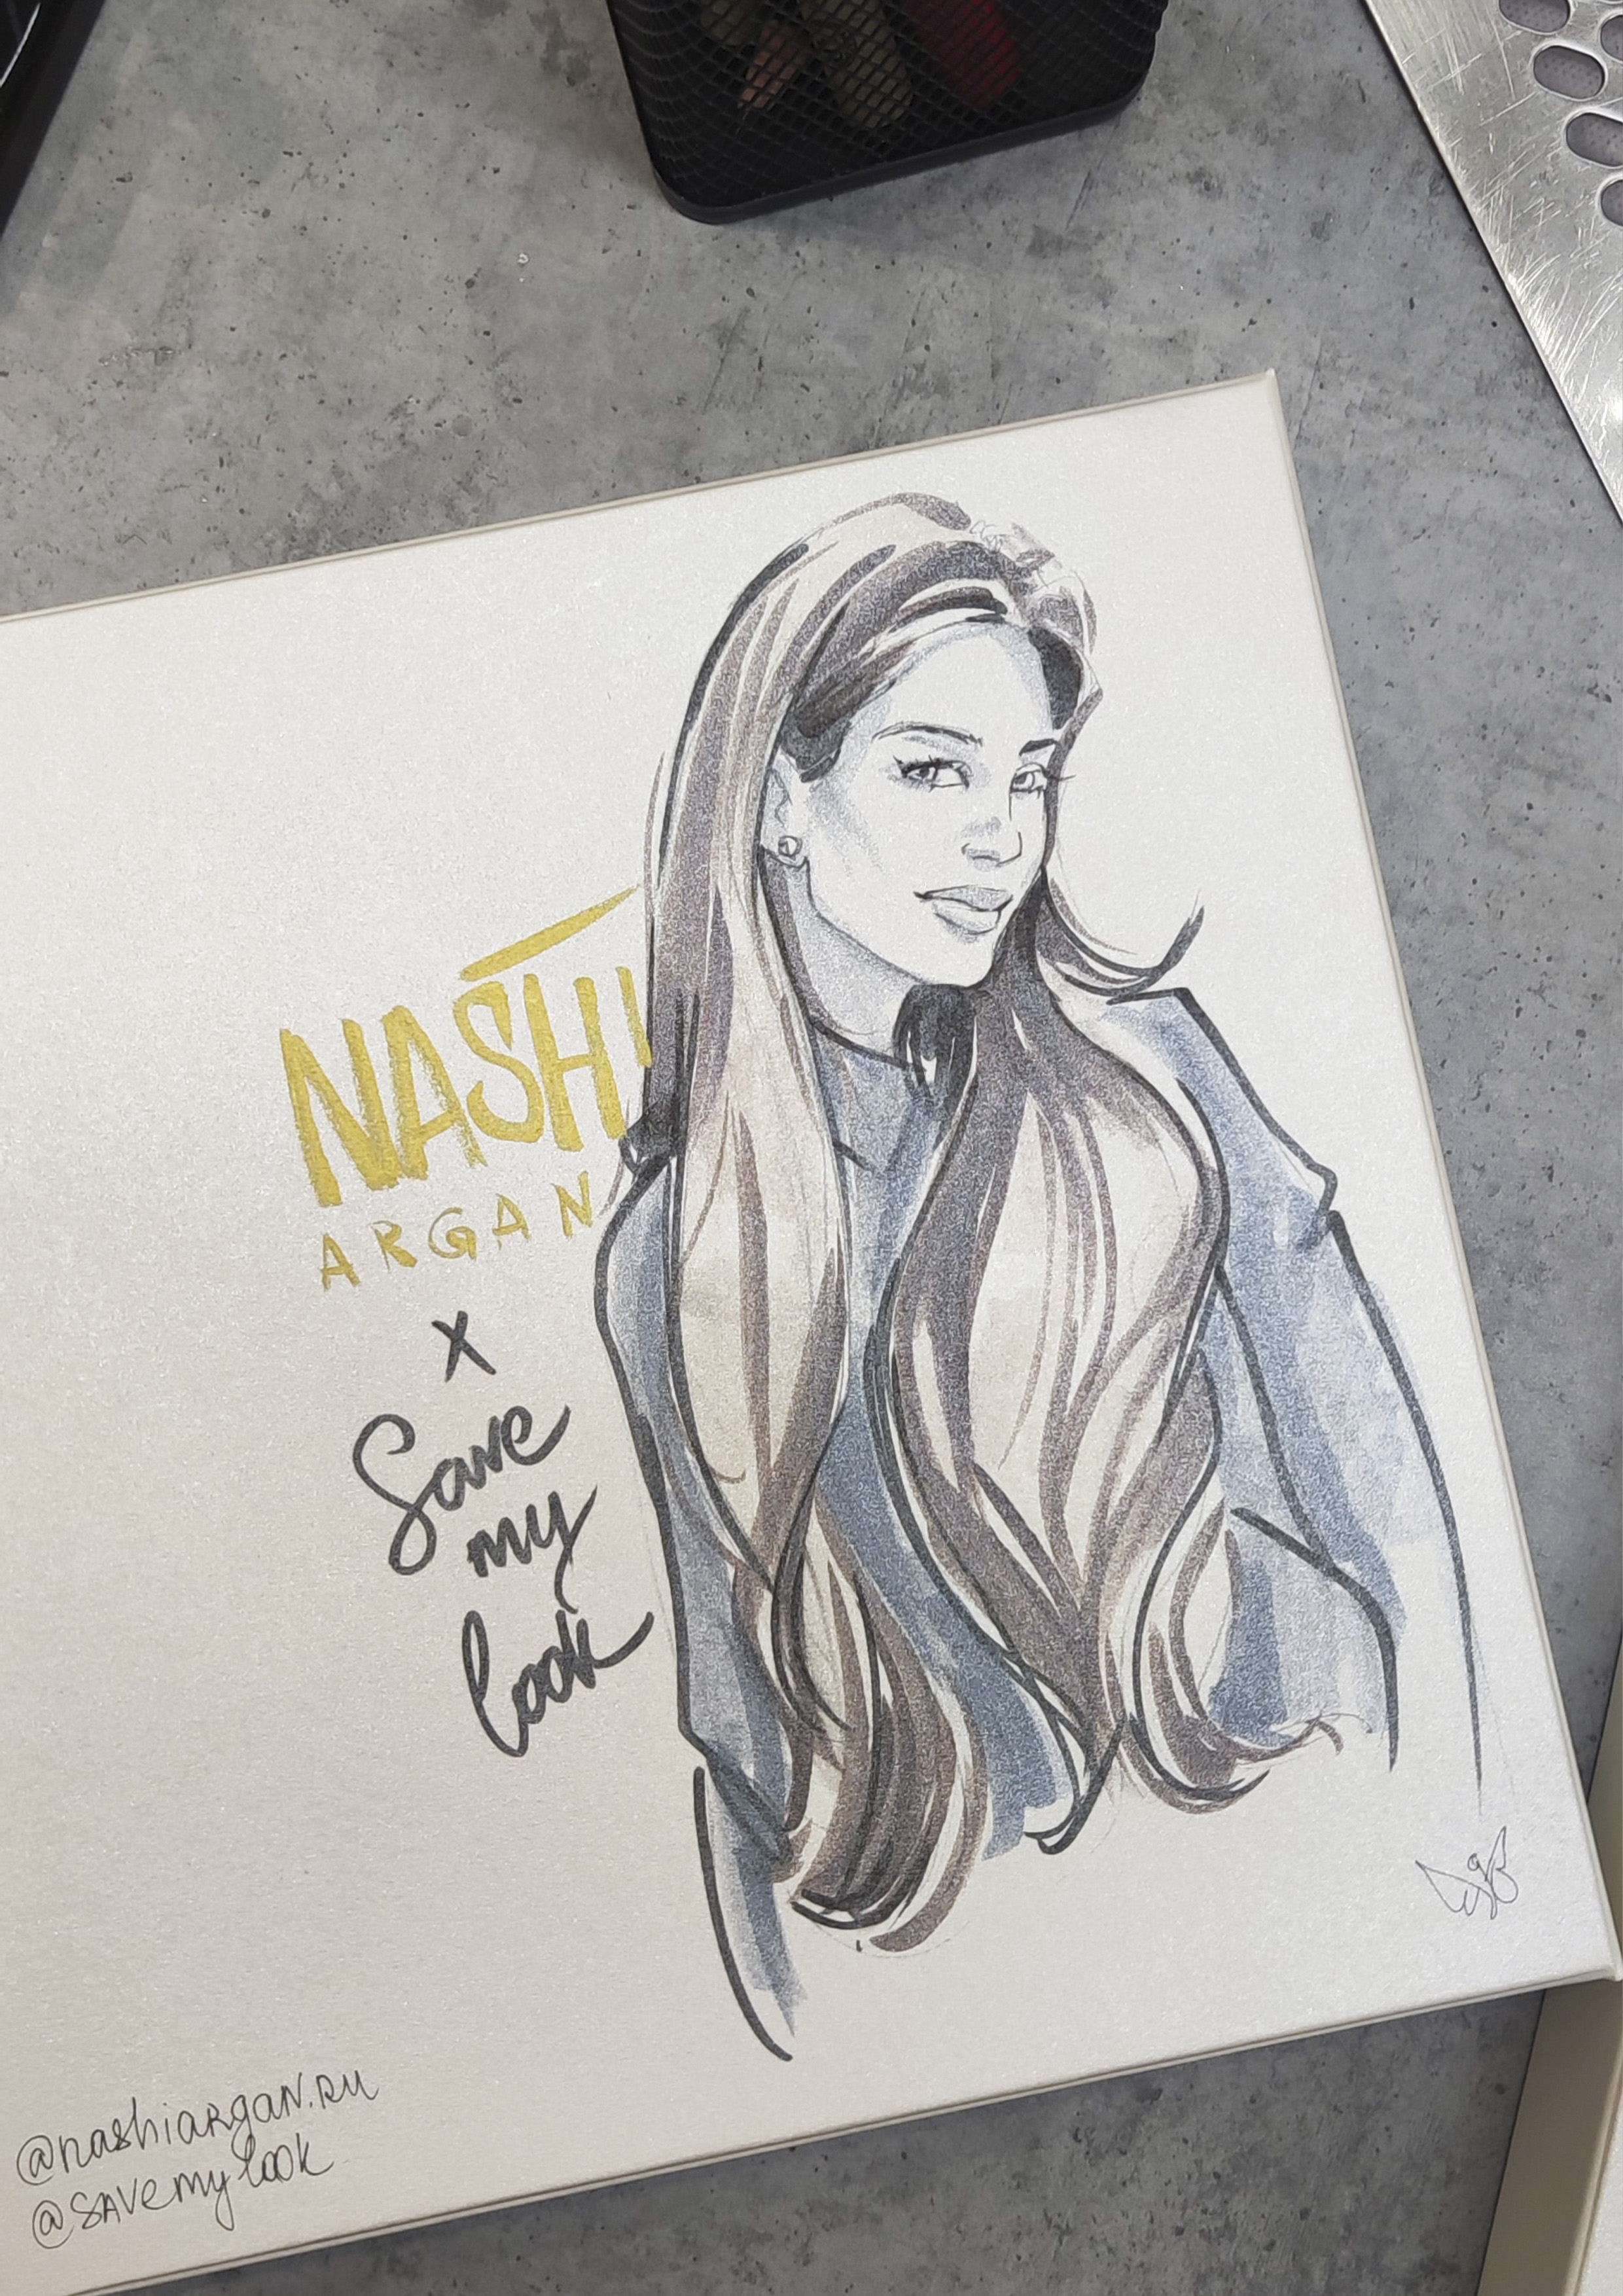 NASHI
ARGAN
x
Save
my
look
@nashiargan.ru
@savemylook